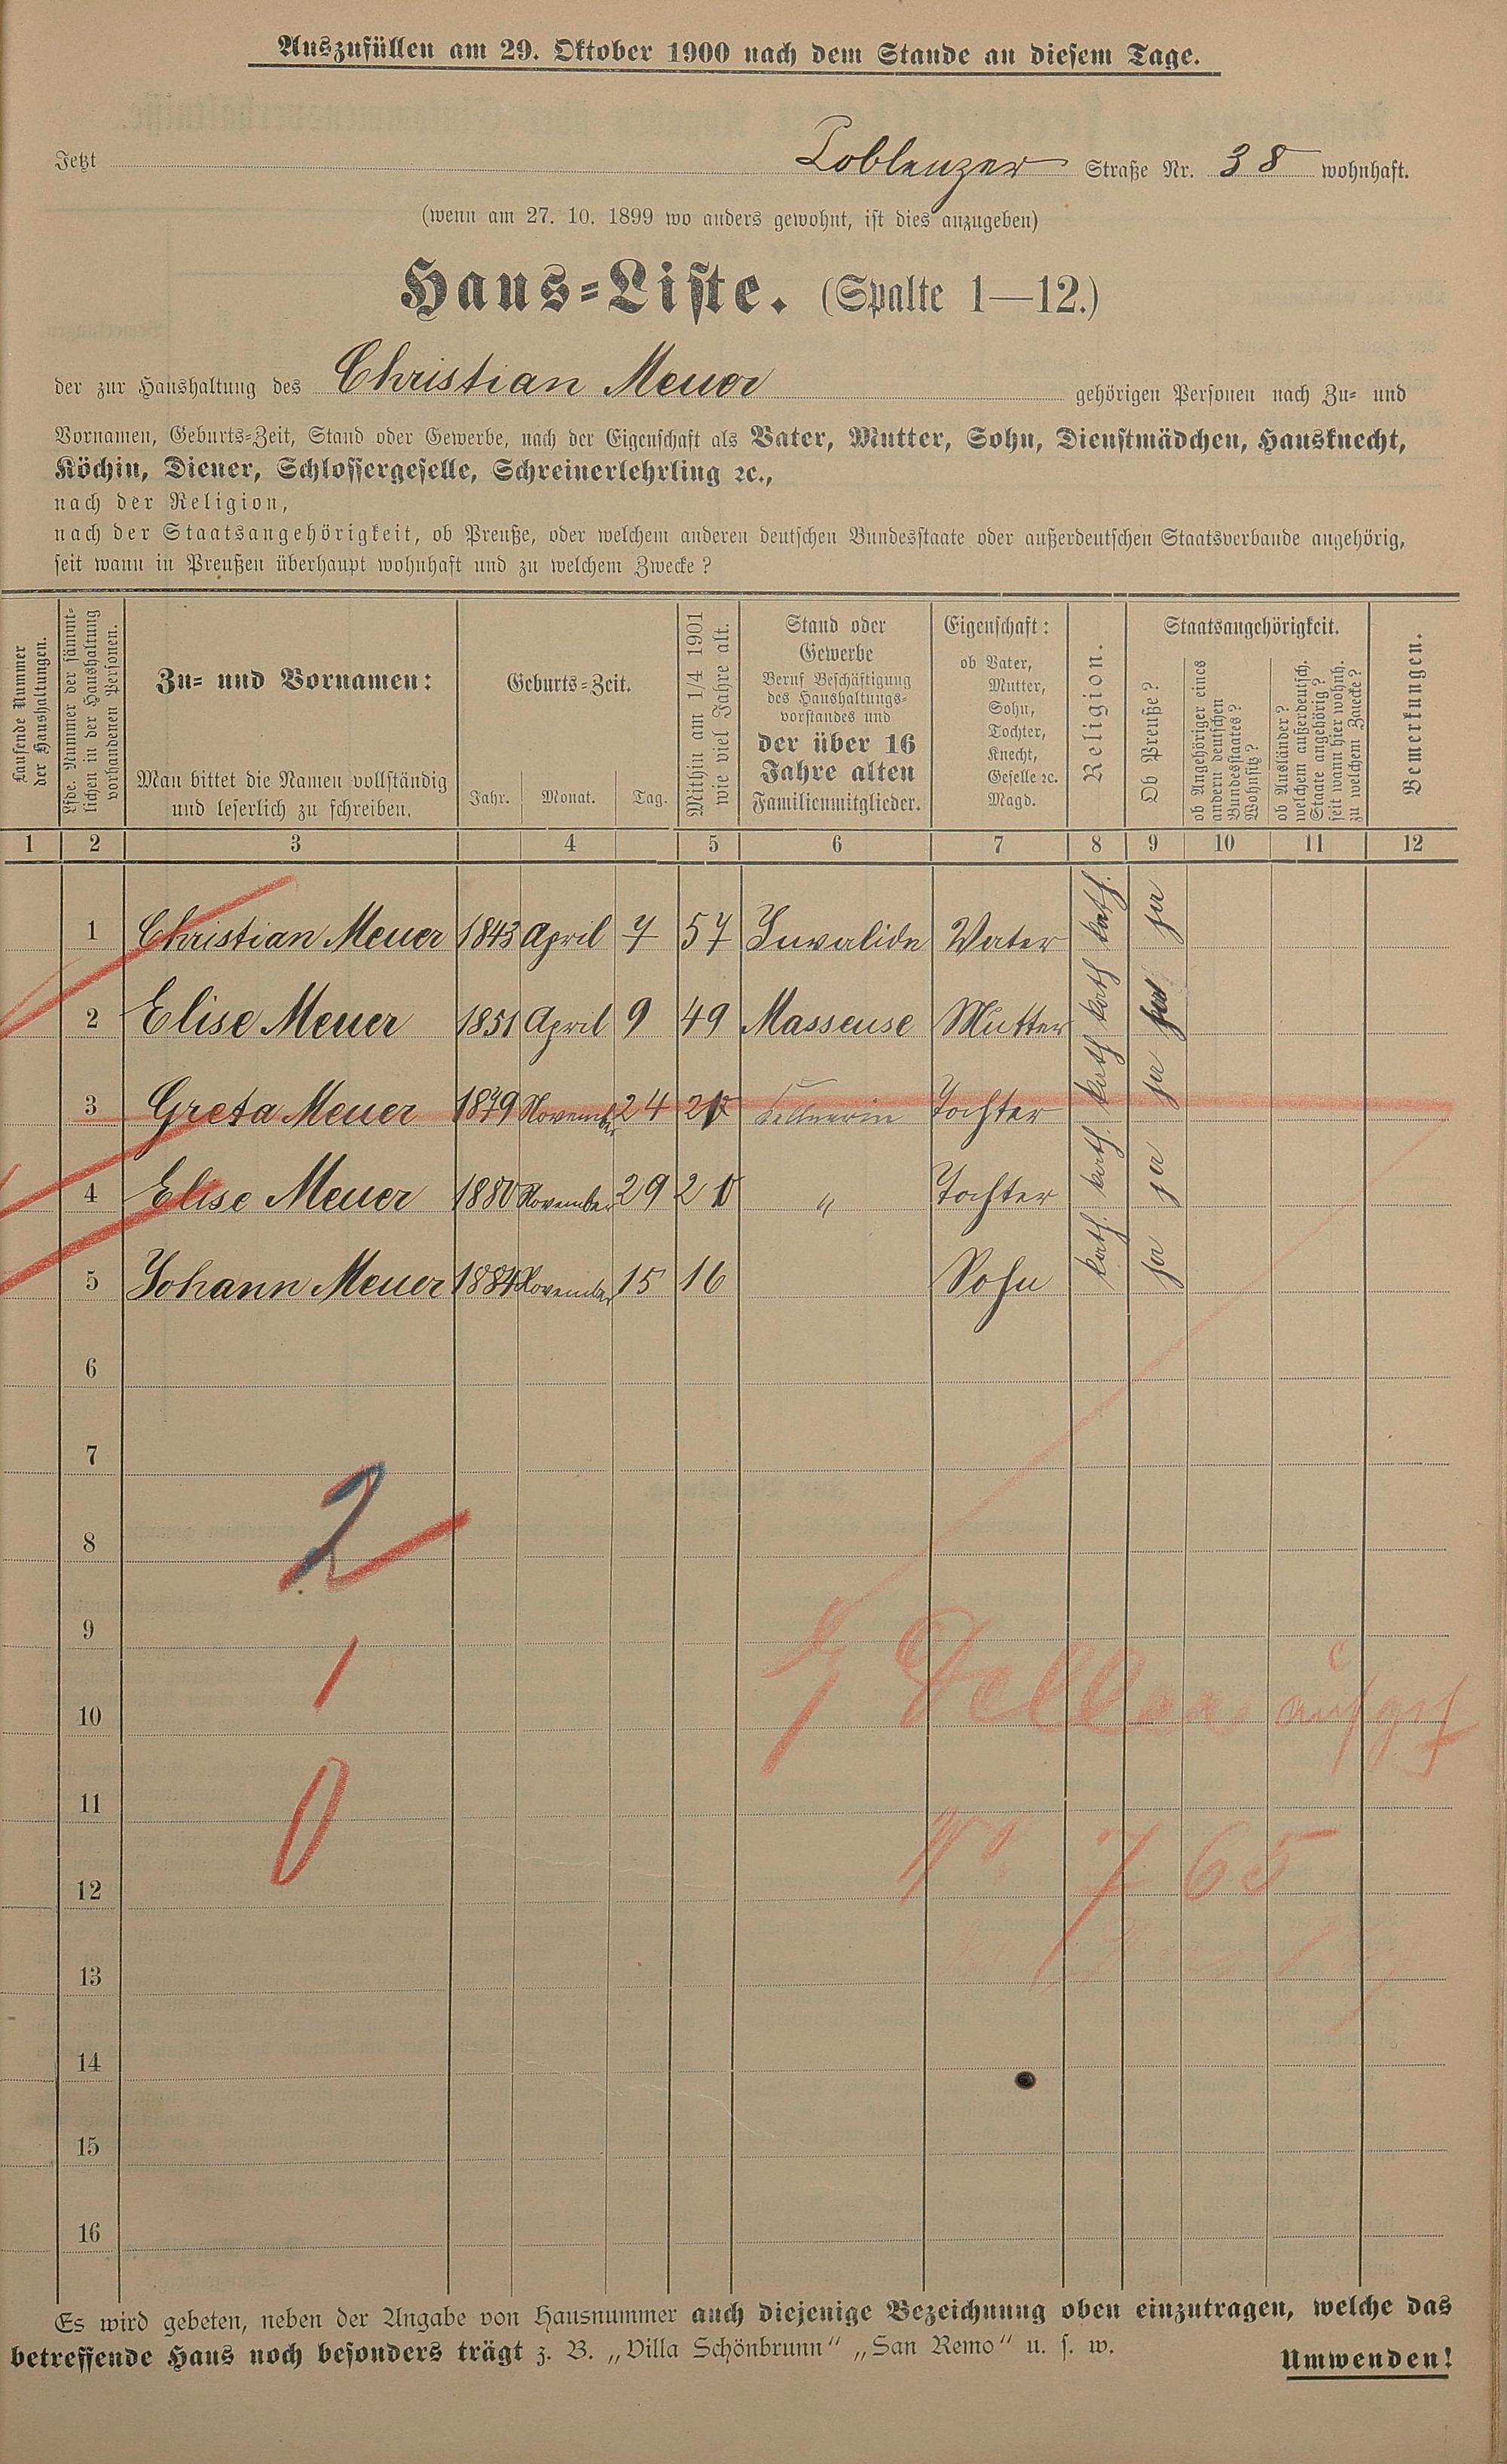 Auszufüllen am 29. Oktober 1900 nach dem Stande an diesem Tage.
Jetzt Coblenzer Straße Nr. 38 wohnhaft.
(wenn am 27. 10. 1899 wo anders gewohnt, ist dies anzugeben)
Haus-Liste. (Spalte 1—12.)
der zur Haushaltung des Christian Meuer gehörigen Personen nach Zu- und
Vornamen, Geburts-Zeit, Stand oder Gewerbe, nach der Eigenschaft als Vater, Mutter, Sohn, Dienstmädchen, Hausknecht,
Köchin, Diener, Schlossergeselle, Schreinerlehrling ꝛc.,
nach der Religion,
nach der Staatsangehörigkeit, ob Preuße, oder welchem anderen deutschen Bundesstaate oder außerdeutschen Staatsverbande angehörig,
seit wann in Preußen überhaupt wohnhaft und zu welchem Zwecke?
Laufende Nummer
der Haushaltungen.
Lfde. Nummer der sämmt-
lichen in der Haushaltung
vorhandenen Personen.
Zu- und Vornamen:
Man bittet die Namen vollständig
und leserlich zu schreiben.
Geburts-Zeit.
Jahr. Monat. Tag.
Mithin am 1/4 1901
wie viel Jahre alt.
Stand oder
Gewerbe
Beruf Beschäftigung
des Haushaltungs-
vorstandes und
der über 16
Jahre alten
Familienmitglieder.
Eigenschaft:
ob Vater,
Mutter,
Sohn,
Tochter,
Knecht,
Geselle ꝛc.
Magd.
Religion.
Staatsangehörigkeit.
Ob Preuße?
ob Angehöriger eines
andern deutschen
Bundesstaates?
Wohnsitz?
ob Ausländer?
welchem außerdeutsch.
Staate angehörig?
seit wann hier wohnh.
zu welchem Zwecke?
Bemerkungen.
1 2 3 4 5 6 7 8 9 10 11 12
1 Christian Meuer 1843 April 7 57 Invalide Vater kath. ja
2 Elise Meuer 1851 April 9 49 Masseuse Mutter kath ja
3 Greta Meuer 1879 November 24 21 Kellnerin Tochter kath ja
4 Elise Meuer 1880 November 29 20 " Tochter kath. ja
5 Johann Meuer 1884 November 15 16 Sohn kath. ja
6
7
2
8
9
1
10
11
0
No. 765
12
13
14
15
16
Es wird gebeten, neben der Angabe von Hausnummer auch diejenige Bezeichnung oben einzutragen, welche das
betreffende Haus noch besonders trägt z. B. „Villa Schönbrunn" „San Remo" u. s. w.
Umwenden!